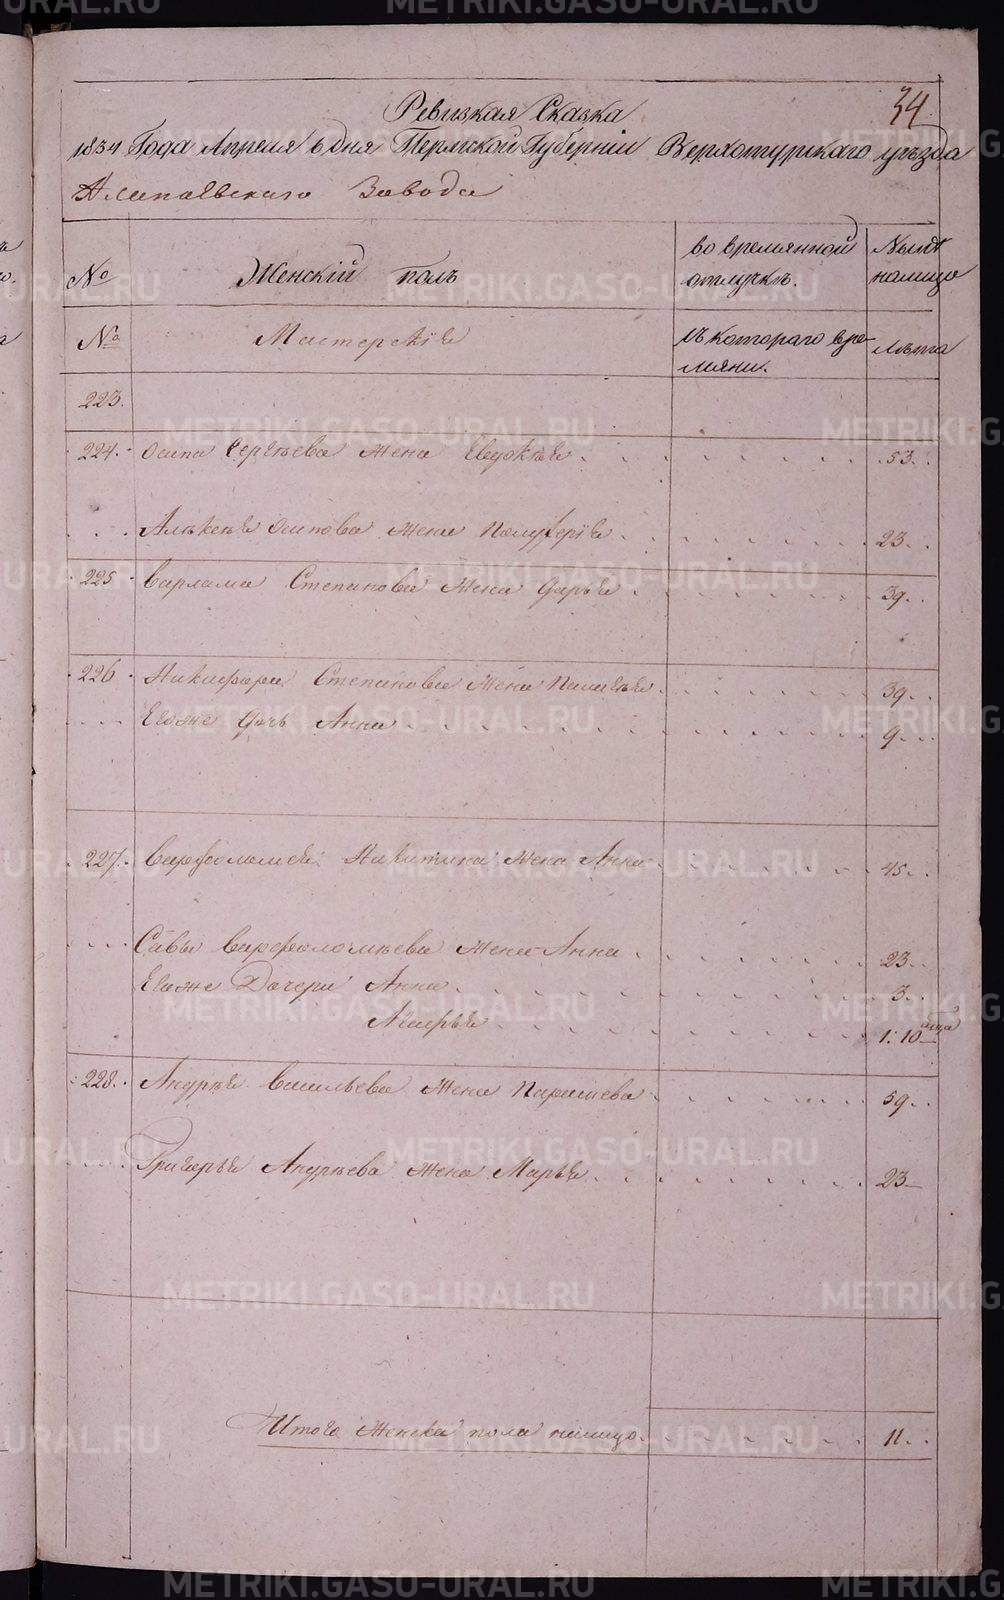 34
Ревизкая Сказка
1834 Года Апреля 6 дня Пермской Губерніи Верхотурскаго уѣзда
Алапаевскаго Завода
№ Женскій полъ во времянной отлучкѣ. Нынѣ налицо
№ Мастерскіе съ котораго вре-мяни. лѣта
223.
224. Осипа Сергѣева жена Евдокѣя 53.
Алѣксѣя Осипова жена 23.
225 Варлама Степанова жена Дарья 39.
226 Никифора Степанова жена Палагѣя 39.
Егоже дочь Анна 9.
227. Варфоломея Никитина жена Анна 45.
Савы Варфоломѣева жена Анна 23.
Егоже Дочери Анна 3.
Марья 1:10 мца
228. Андрѣя Васильева жена Парасковья 59.
Григорья Андрѣева жена Марья 23
Итого женска пола налицо 11.
METRIKI.GASO-URAL.RU